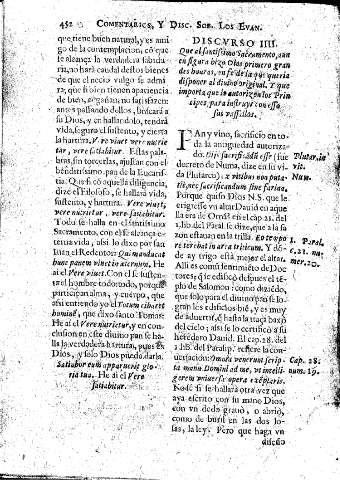 452 COMENTARIOS, Y DISC. SOB. LOS EVAN.
que tiene buen natural, y es ami-
go de la contemplacion, có q̃ se
le alcança la verdadera sabidu-
ria, no hará caudal destos bienes
de que el necio vulgo se admi-
ra, q̃ si bien tienen apariencia
de buẽ, no satisfazen:
antes passando dellos, buscará a
su Dios, y en hallandolo, tendrá
vida, segura el sustento, y cierta
la hartura. Vere vivet vere nutrie
tur, vere satiabitur. Estas pala-
bras, sin torcerlas, ajustan con el
bẽditissimo pan de la Eucaris-
tia: Que si có aquella diligencia,
dize el Filosofo, se hallará vida,
sustento, y hartura. Vere vivet,
vere nutrietur, vere satiabitur.
Todo se halla en el santissimo
Sacramento, con el se alcança e-
terna vida, assi lo dixo por san
Iuan el Redentor: Qui manducat
hunc panem vivet in æternum. He
ai el Vere vivet. Con el se susten-
ta el hombre todo, porq̃
participan alma, y cuerpo, que
assi entiendo yo el Totum cibaret
hominẽ, que dixo santo Tomas:
He ai el Vere nutrietur, y en con-
clusion en este divino pan se ha-
lla la verdadera hartura, pues es
Dios, y solo Dios puede darla.
Satiabor cum apparuerit glo-
ria tua. He ai el Vere
satiabitur.
DISCVRSO IIII.
Que al santissimo Sacramento, aun
en figura hizo Dios primero gran
des honras, en fè de las q̃ se queria
dispensar al divino original. Y que
importa que lo autorizen los Prin
cipes, para instruyr con esso
sus vassallos.
FAn y vino, sacrificio en to-
da la antiguedad autoriza-
do. Diis sacrificãdũ esse (fue
decreto de Numa, dize en su vi-
da Plutarco) e vitibus non puta-
tis, nec sacrificandum sine farina.
Porque quiso Dios N.S. que le
erigesse vn altar David en aquella
era de Ornã en el cap. 21. del
1. lib. del Paral. se dize, que a la sa
zon estavan en la trilla. Eo tempo
re terebat in area triticum. Y don-
de ay trigo está mejor el altar.
Alli es comũ sentimiento de Doc
tores, q̃ se edificó despues el tẽ-
plo de Salomon: como diziẽdo,
que solo para el divino pan se lo-
gran los edificios bié, y es muy
de advertir, q̃ hasta la traça baxó
del cielo; assi se lo certificó a su
heredero David. El cap. 28. del
1. lib. del Paralip. refiere la con-
versacion: Omnia venerunt scrip-
ta manu Domini ad me, ut intelli-
gerem universa opera exẽplaris.
No sé si se hallará otra vez que
aya escrito con su mano Dios,
con vn dedo gravó, o abrió,
como de buril en las dos lo-
sas, la ley. Pero que haga vn
diseño
Plutar. in
vit.
Num.
1. Paral.
c. 21. nu-
mer. 20.
Cap. 28.
num. 19.